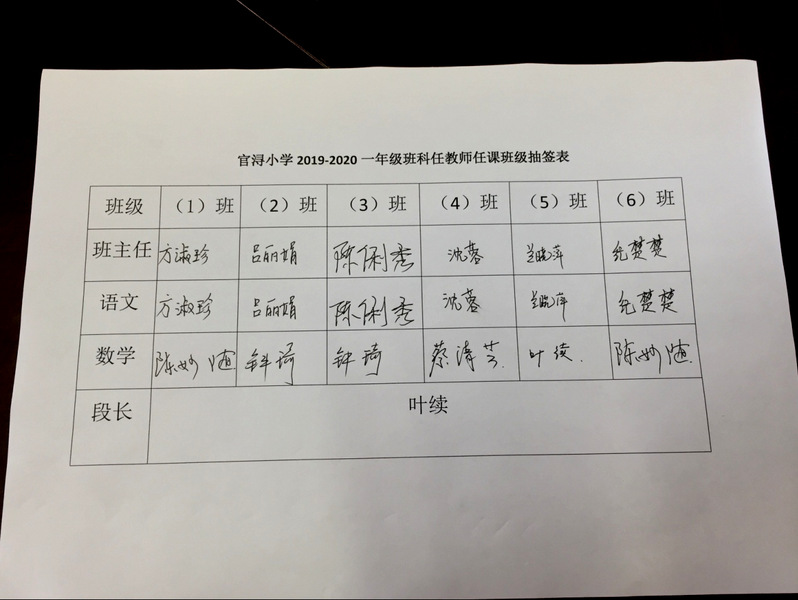 官浔小学 2019-2020 一年级班科任教师任课班级抽签表
班级 （1）班 （2）班 （3）班 （4）班 （5）班 （6）班
班主任 方淑珍 吕丽娟 陈俐秀 沈蓉 兰晓萍 纪楚楚
语文 方淑珍 吕丽娟 陈俐秀 沈蓉 兰晓萍 纪楚楚
数学 陈妙随 钟琦 钟琦 蔡涛芸. 叶续. 陈妙随.
段长 叶续